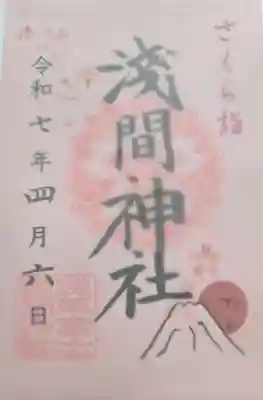 さくら詣
淺間神社
令和七年四月六日